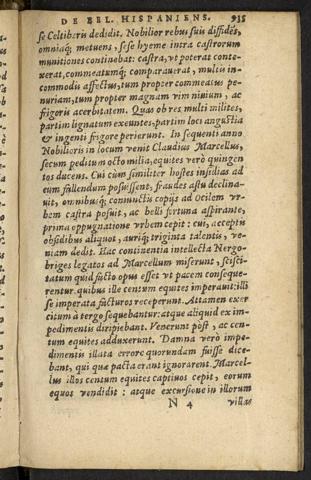 DE BEL. HISPANIENS. 935
se Celtiberis dedidit. Nobilior rebus suis diffidẽs,
omniaq́; metuens, sese hyeme intra castrorum
munitiones continebat: castra, vt poterat conte-
xerat, commeatumq́; comparauerat, multis in-
commodis affectus, tum propter commeatus pe-
nuriam, tum propter magnam vim niuium, ac
frigoris acerbitatem. Quas ob res multi milites,
partim lignatum exeuntes, partim loci angustia
& ingenti frigore perierunt. In sequenti anno
Nobilioris in locum venit Claudius Marcellus,
secum peditum octo milia, equites verò quingen
tos ducens. Cui cùm similiter hostes insidias ad
eum fallendum posuissent, fraudes astu declina-
uit, omnibusq́; coniunctis copijs ad Ocilem vr-
bem castra posuit, ac belli fortuna aspirante,
prima oppugnatione vrbem cepit: cui, acceptis
obsidibus aliquot, auriq́; triginta talentis, ve-
niam dedit. Hac continentia intellecta Nergo-
briges legatos ad Marcellum miserunt, scisci-
tatum quid facto opus esset vt pacem conseque-
rentur. quibus ille centum equites imperauit: illi
se imperata facturos receperunt. Attamen exer
citum à tergo sequebantur: atque aliquid ex im-
pedimentis diripiebant. Venerunt pòst, ac cen-
tum equites adduxerunt. Damna verò impe-
dimentis illata errore quorundam fuisse dice-
bant, qui quæ pacta erant ignorarent. Marcel-
lus illos centum equites captiuos cepit, eorum
equos vendidit: atque excursione in illorum
N 4 villas